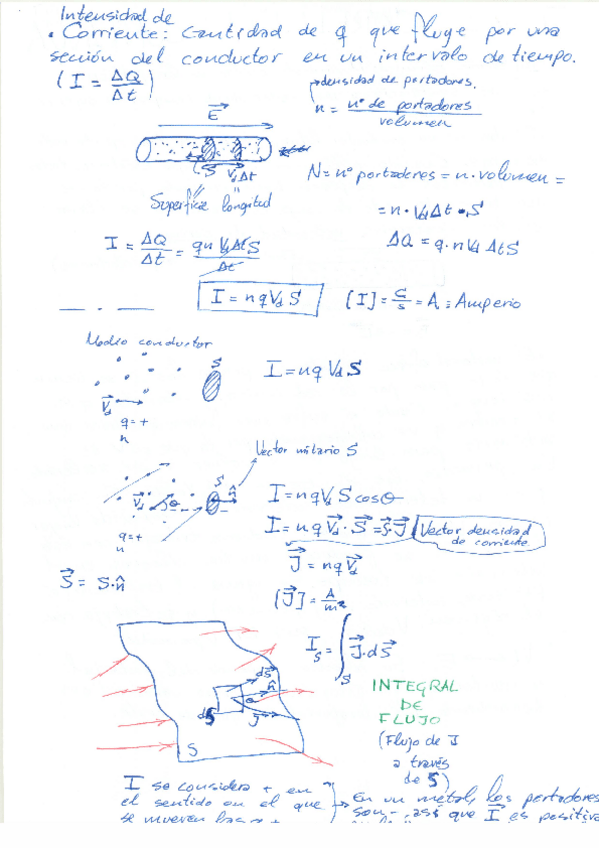 Intensidad de
• Corriente: Cantidad de q que fluye por una
sección del conductor en un intervalo de tiempo.
(I = ΔQ/Δt)
densidad de portadores.
n = nº de portadores / volumen
E
S
Vd Δt
Superficie longitud
N = nº portadores = n · volumen =
= n · VdΔt · S
I = ΔQ/Δt = qn VdΔt S / Δt
ΔQ = q · n Vd Δt S
I = n q Vd S
[I] = C/s = A = Amperio
Medio conductor
S
I = n q Vd S
Vd
q = +
n
Vector unitario S
S
n̂
Vd θ
I = n q Vd S cos θ
q = +
n
I = n q Vd · S = S · J
Vector densidad
de corriente
J = n q Vd
S = S · n̂
[J] = A/m²
I_S = ∫_S J · dS
dS
n̂
θ
dS
J
S
INTEGRAL
DE
FLUJO
(Flujo de J
a través
de S)
I se considera + en
el sentido en el que
se mueven las q +
En un metal, los portadores
son -, así que I es positiva